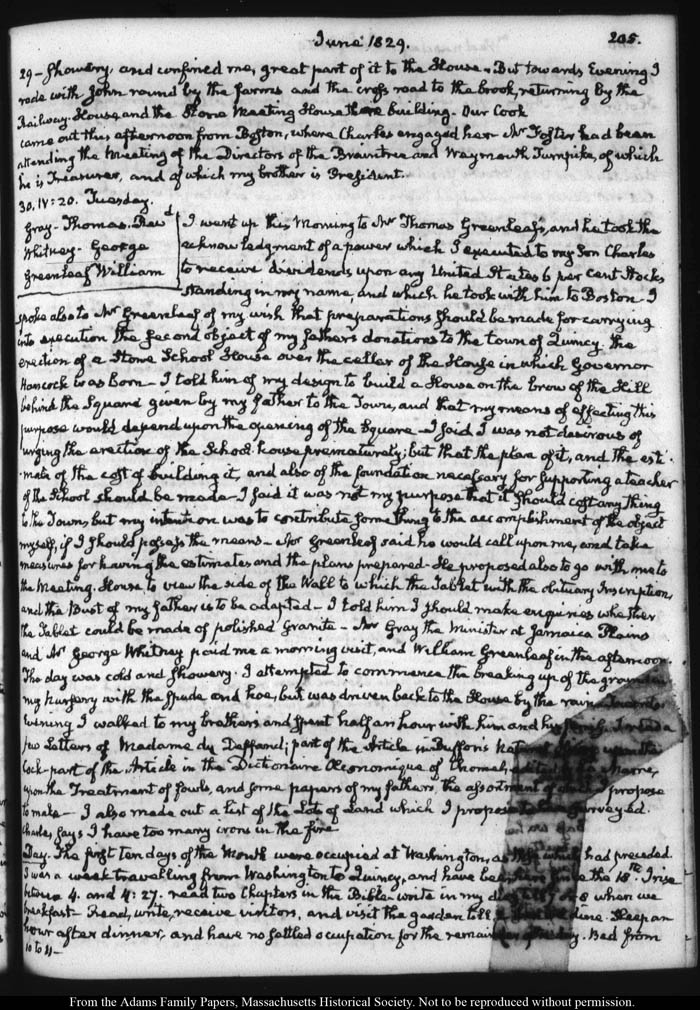 June 1829.
205.
29 – Showery, and confined me, great part of it to the House. But towards Evening I
rode with John round by the farms and the cross road to the brook, returning by the
Railway House, and the Stone Meeting House there building. Our Cook
came out this afternoon from Boston, where Charles engaged her. Mr Foster had been
attending the Meeting of the Directors of the Braintree and Weymouth Turnpike, of which
he is Treasurer, and of which my brother is President.
30. IV: 20. Tuesday.
Gray – Thomas. Revd
Whitney – George
Greenleaf William
I went up this Morning to Mr Thomas Greenleaf's, and he took the
acknowledgment of a power which I executed to my Son Charles
to receive dividends upon any United States 6 per cent Stocks
standing in my name, and which he took with him to Boston – I
spoke also to Mr Greenleaf of my wish that preparations should be made for carrying
into execution the second object of my father's donations to the town of Quincy. the
erection of a Stone School House over the cellar of the House in which Governor
Hancock was born – I told him of my design to build a House on the brow of the Hill
behind the Square given by my father to the Town, and that my means of effecting this
purpose would depend upon the opening of the Square – I said I was not desirous of
urging the erection of the School-house prematurely; but that the plan of it, and the esti-
mate of the cost of building it, and also of the foundation necessary for supporting a teacher
of the School should be made – I said it was not my purpose that it should cost any thing
to the Town; but my intention was to contribute something to the accomplishment of the object
myself, if I should possess the means – Mr Greenleaf said he would call upon me, and take
measures for having the estimates and the plans prepared. He proposed also to go with me to
the Meeting-House to view the side of the Wall to which the Tablet with the obituary Inscription,
and the Bust of my father is to be adapted – I told him I should make enquiries whether
the Tablet could be made of polished Granite – Mr Gray the Minister at Jamaica Plains
and Mr George Whitney paid me a morning visit, and William Greenleaf in the afternoon.
The day was cold and showery. I attempted to commence the breaking up of the ground in
my nursery with the spade and hoe, but was driven back to the House by the rain. Towards
Evening I walked to my brother's and spent half an hour with him and his family. I read a
few Letters of Madame du Deffand; part of the Article in Buffon's Natural upon the
Cock – part of the Article in the Dictionaire Œconomique of Chomel, edited by Marre,
upon the Treatment of fowls, and some papers of my father's, the assortment of which I propose
to make – I also made out a list of the Lots of Land which I propose to have surveyed.
Charles says I have too many irons in the fire
Day. The first ten days of the Month were occupied at Washington, as those which had preceded.
I was a week travelling from Washington to Quincy, and have been here since the 18th. I rise
between 4. and 4:27. read two Chapters in the Bible – write in my diary till 7 or 8 when we
breakfast – Read, write, receive visitors, and visit the garden till 2 dine. Sleep an
hour after dinner, and have no settled occupation for the remainder of the day. Bed from
10 to 11 –
From the Adams Family Papers, Massachusetts Historical Society. Not to be reproduced without permission.